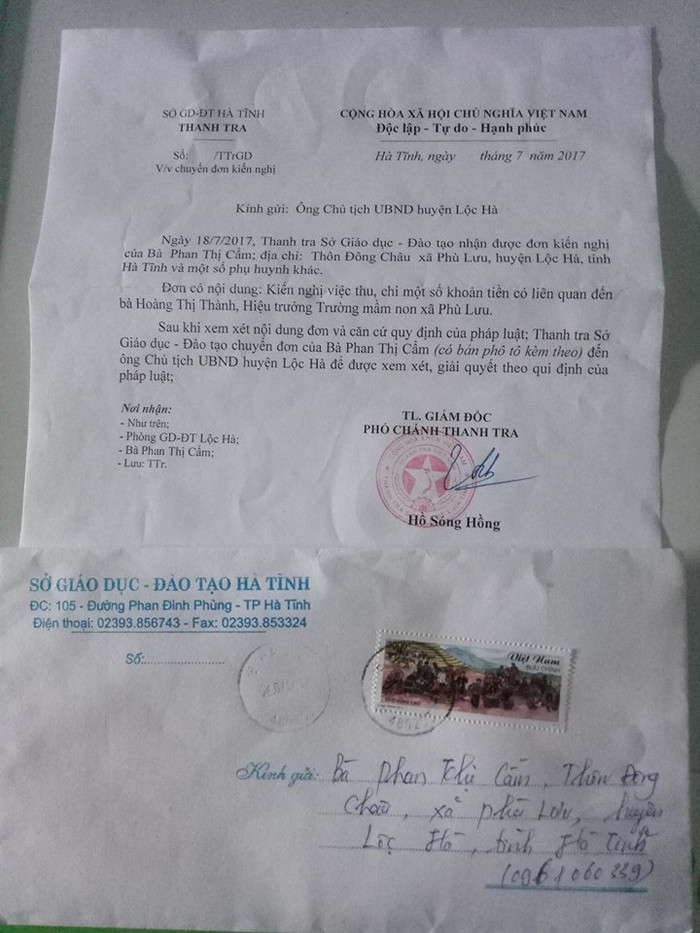 SỞ GD-ĐT HÀ TĨNH
THANH TRA
Số: /TTrGD
V/v chuyển đơn kiến nghị
CỘNG HÒA XÃ HỘI CHỦ NGHĨA VIỆT NAM
Độc lập - Tự do - Hạnh phúc
Hà Tĩnh, ngày tháng 7 năm 2017
Kính gửi: Ông Chủ tịch UBND huyện Lộc Hà
Ngày 18/7/2017, Thanh tra Sở Giáo dục - Đào tạo nhận được đơn kiến nghị
của Bà Phan Thị Cẩm; địa chỉ: Thôn Đông Châu xã Phù Lưu, huyện Lộc Hà, tỉnh
Hà Tĩnh và một số phụ huynh khác.
Đơn có nội dung: Kiến nghị việc thu, chi một số khoản tiền có liên quan đến
bà Hoàng Thị Thành, Hiệu trưởng Trường mầm non xã Phù Lưu.
Sau khi xem xét nội dung đơn và căn cứ quy định của pháp luật; Thanh tra Sở
Giáo dục - Đào tạo chuyển đơn của Bà Phan Thị Cẩm (có bản phô tô kèm theo) đến
ông Chủ tịch UBND huyện Lộc Hà để được xem xét, giải quyết theo qui định của
pháp luật;
Nơi nhận:
- Như trên;
- Phòng GD-ĐT Lộc Hà;
- Bà Phan Thị Cẩm;
- Lưu: TTr.
TL. GIÁM ĐỐC
PHÓ CHÁNH THANH TRA
Hồ Sóng Hồng
SỞ GIÁO DỤC - ĐÀO TẠO HÀ TĨNH
ĐC: 105 - Đường Phan Đình Phùng - TP Hà Tĩnh
Điện thoại: 02393.856743 - Fax: 02393.853324
Số:
Việt Nam
BƯU CHÍNH
Kính gửi: Bà Phan Thị Cẩm, Thôn Đông
Châu, xã Phù Lưu, huyện
Lộc Hà, tỉnh Hà Tĩnh
(0961060339)